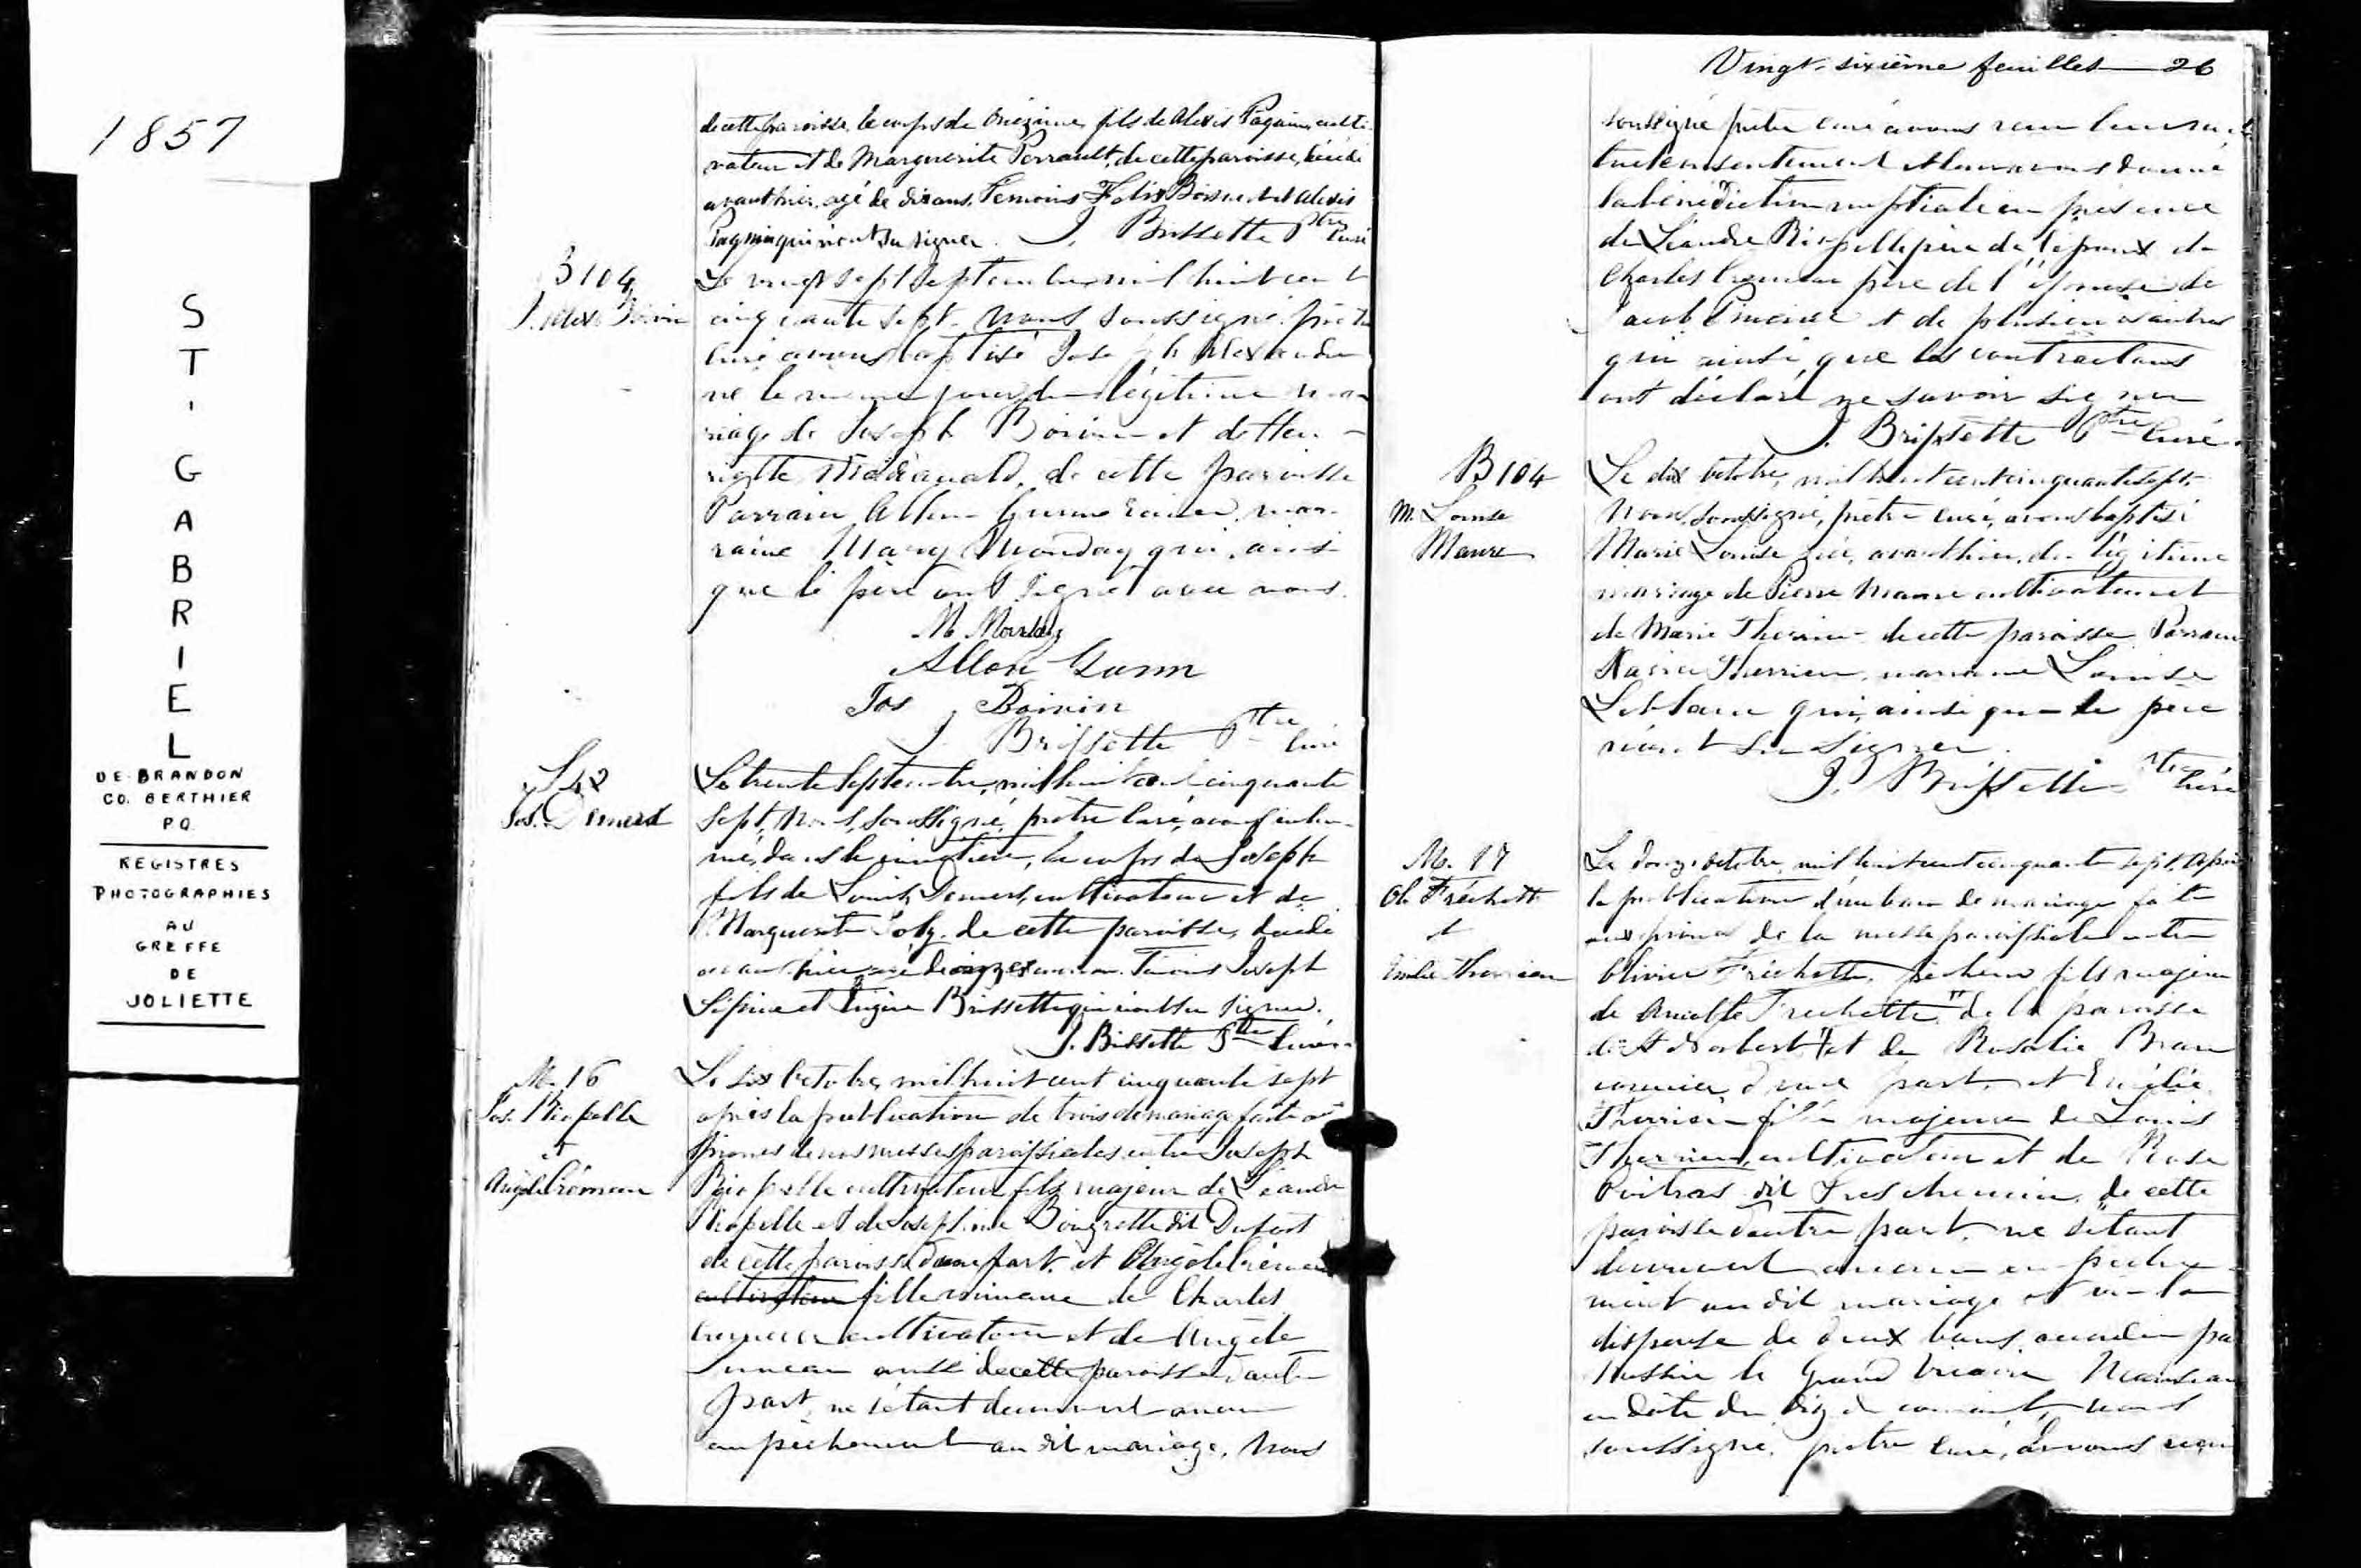 1857
ST. GABRIEL
DE BRANDON
CO. BERTHIER
P.Q.
REGISTRES
PHOTOGRAPHIES
AU
GREFFE
DE
JOLIETTE
de cette paroisse, le corps de Onézime, fils de Alexis Pagain, culti-
vateur et de Marguerite Perrault, de cette paroisse, décédé
avant hier, agé de dix ans. Témoins Felix Boisvert et Alexis
qui n'ont su signer. J. Brissette Ptre Curé
B 104
J. Alexe Boivin
Le vingt sept septembre mil huit cent
cinquante sept. Nous soussigné prêtre
curé avons baptisé Joseph Alexandre
né le même jour du légitime ma-
riage de Joseph Boivin et de Hen-
riette de cette paroisse
Parrain Allen Gunn marraine
Mary Monday qui, ainsi
que le père ont signé avec nous.
M Monday
Allan Gunn
Jos Boivin
J. Brissette Ptre Curé
S 42
Jos. Demers
Le trente Septembre, mil huit cent cinquante
sept, Nous, soussigné, prêtre curé, avons inhu-
mé, dans le cimetière, le corps de Joseph
fils de Louis Demers, cultivateur et de
Marguerite Joly, de cette paroisse, décédé
avant hier agé de environ. Témoins Joseph
Lépine et Eugène Brissette qui n'ont su signer.
J. Brissette Ptre Curé
M. 16
Jos. Riopelle
et
Angèle Crémeau
Le six Octobre, mil huit cent cinquante sept
après la publication de trois de mariage faite aux
prones de nos messes paroissiales entre Joseph
Riopelle cultivateur fils majeur de Léandre
Riopelle et de Josephine Bougrette dit Dufort
de cette paroisse d'une part, et Angèle
cultivateur fille mineure de Charles
cultivateur et de Angèle
aussi de cette paroisse d'autre
part, ne s'étant découvert aucun
empêchement au dit mariage, Nous
Vingt-sixième feuillet 26
soussigné prêtre curé avons reçu leur mu-
tuel consentement et leur avons donné
la bénédiction nuptiale en présence
de Léandre Riopelle père de l'époux de
Charles père de l'épouse de
Jacob et de plusieurs autres
qui ainsi que les contractans
ont déclaré ne savoir signer
J. Brissette Ptre Curé
B 104
M. Louise
Maure
Le dix Octobre, mil huit cent cinquante sept,
Nous, soussigné, prêtre curé, avons baptisé
Marie Louise née, avant hier, du légitime
mariage de Pierre Maure cultivateur et
de Marie Therien de cette paroisse Parrain
Therrien, marraine Louise
Leblanc qui, ainsi que le père
n'ont su signer.
J. Brissette Ptre Curé
M. 17
Ol. Fréchette
et
Emélie Therrien
Le douze Octobre, mil huit cent cinquante sept, après
la publication d'un ban de mariage faite
aux prones de la messe paroissiale entre
Olivier Fréchette, fils majeur
de Frechette, de la paroisse
de St Norbert et de Rosalie
d'une part, et Emélie
Therrien fille majeure de Louis
Therrien, cultivateur et de Rose
Poitras dit de cette
paroisse d'autre part, ne s'étant
découvert aucun empêche-
ment au dit mariage et vu la
dispense de deux bans accordée par
Messire le Grand Vicaire Manseau
en date du dix du courant, nous
soussigné, prêtre curé, avons reçu